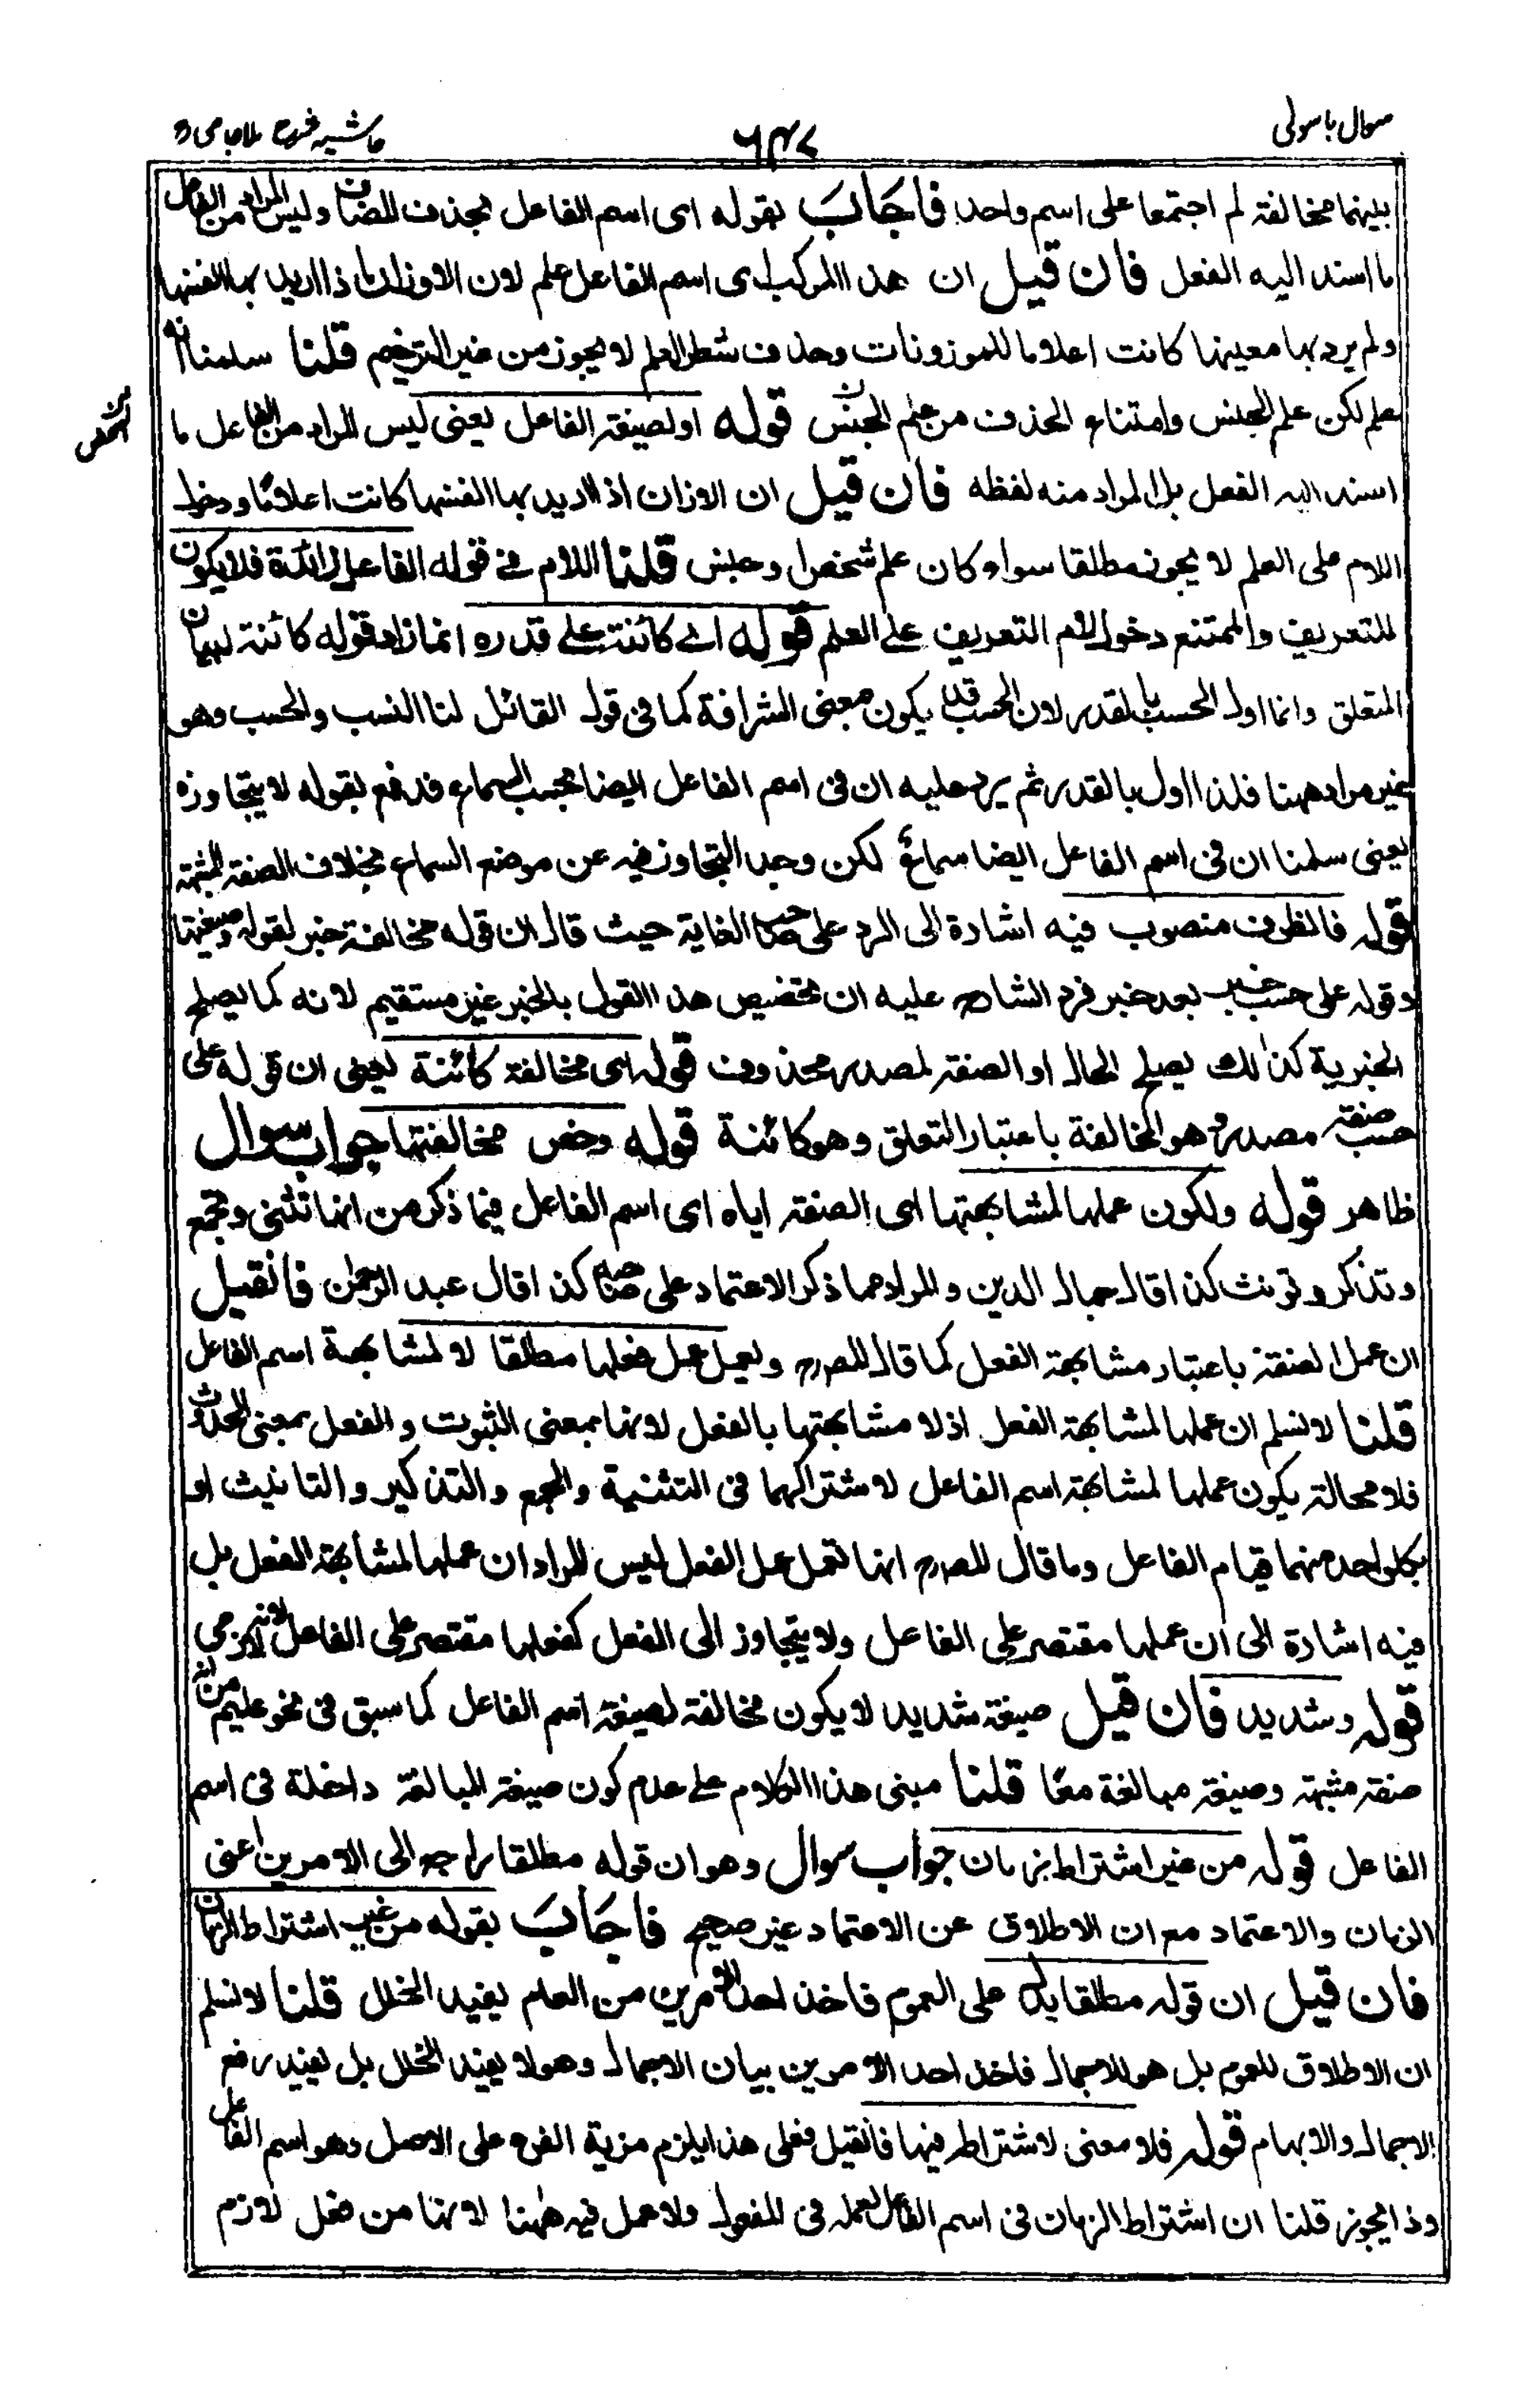 سوال باسولی
۶۴۷
حاشیہ شرح ملا جامی
بينهما مخالفة لم اجتمعا على اسم واحد فاجاب بقوله اى اسم الفاعل بحذف المضاف وليس المراد من الفاعل
ما اسند اليه الفعل فان قيل ان هذا المركب اى اسم الفاعل علم لان الاوزان اذا اريد بها انفسها
ولم يرد بها معينها كانت اعلاما للموزونات وحذف شطر العلم لا يجوز من غير الترخيم قلنا سلمنا انه
علم لكن علم الجنس وامتناع الحذف من علم الجنس قوله او لصيغة الفاعل يعنى ليس المراد من الفاعل ما
اسند اليه الفعل بل المراد منه لفظه فان قيل ان الاوزان اذا اريد بها انفسها كانت اعلامًا ودخول
اللام على العلم لا يجوز مطلقا سواء كان علم شخص او جنس قلنا اللام في قوله الفاعل زائدة فلا يكون
للتعريف والممتنع دخول لام التعريف على العلم قوله اے كائنة على قدره انما زاد قوله كائنة لبيان
المتعلق وانما اول الحسب بالقدر لان الحسب قد يكون بمعنى الشرافة كما فى قول القائل لنا النسب والحسب وهو
غير مراد ههنا فلذا اول بالقدر ثم يرد عليه ان فى اسم الفاعل ايضا بحسب السماع فدفع بقوله لا يتجاوزه
يعنى سلمنا ان فى اسم الفاعل ايضا سماع لكن وجد التجاوز فيه عن موضع السماع بخلاف الصفة المشبهة
قوله فالظرف منصوب فيه اشارة الى الرد على صاحب الغاية حيث قال ان قوله مخالفة خبر لقوله وصيغتها
وقوله على حسب خبر بعد خبر فرد الشارح عليه ان تخصيص هذا القول بالخبر غير مستقيم لانه كما يصلح
الخبرية كذالك يصلح الحال او الصفة لمصدر محذوف قوله اى مخالفة كائنة يعنى ان قوله على
حسب صفة مصدر وهو المخالفة باعتبار المتعلق وهو كائنة قوله وخص مخالفتها جواب سوال
ظاهر قوله ولكون عملها لمشابهتها اى الصفة اياه اى اسم الفاعل فيما ذكر من انها تثنى وتجمع
وتذكر وتؤنث كذا قال جمال الدين والمراد مما ذكر الاعتماد على صاحبه كذا قال عبد الرحمٰن فانقيل
ان عمل الصفة باعتبار مشابهة الفعل كما قال المصرح ولعمل عمل فعلها مطلقا لا لمشابهة اسم الفاعل
قلنا لا نسلم ان عملها لمشابهة الفعل اذ لا مشابهتها بالفعل لانها بمعنى الثبوت والفعل بمعنى الحدوث
فلا محالة يكون عملها لمشابهة اسم الفاعل لاشتراكهما فى التثنية والجمع والتذكير والتانيث او
بكل واحد منهما قيام الفاعل وما قال المصرح انها تعمل عمل الفعل ليس المراد ان عملها لمشابهة الفعل بل
فيه اشارة الى ان عملها مقتصر على الفاعل ولا يتجاوز الى الفعل كفعلها مقتصر على الفاعل لانه لازمى
قوله وشديد فان قيل صيغة شديد لا يكون مخالفة لصيغة اسم الفاعل كما سبق فى نحو عليم من انه
صفة مشبهة وصيغة مبالغة معًا قلنا مبنى هذا الكلام على عدم كون صيغة المبالغة داخلة فى اسم
الفاعل قوله من غير اشتراط زمان جواب سوال وهو ان قوله مطلقا راجع الى الامرين اعنى
الزمان والاعتماد مع ان الاطلاق عن الاعتماد غير صحيح فاجاب بقوله من غير اشتراط الزمان
فان قيل ان قوله مطلقا يدل على العموم فاخذ احد الامرين من العام يفيد الخلل قلنا لا نسلم
ان الاطلاق للعموم بل هو للاجمال فاخذ احد الامرين بيان الاجمال وهو لا يفيد الخلل بل يفيد رفع
الاجمال والابهام قوله فلا معنى لاشتراطه فيها فانقيل فعلى هذا يلزم مزية الفرع على الاصل وهو اسم الفاعل
وذا يجوز قلنا ان اشتراط الزمان فى اسم الفاعل لعمله فى المفعول ولا عمل فيه ههنا لانها من فعل لازم